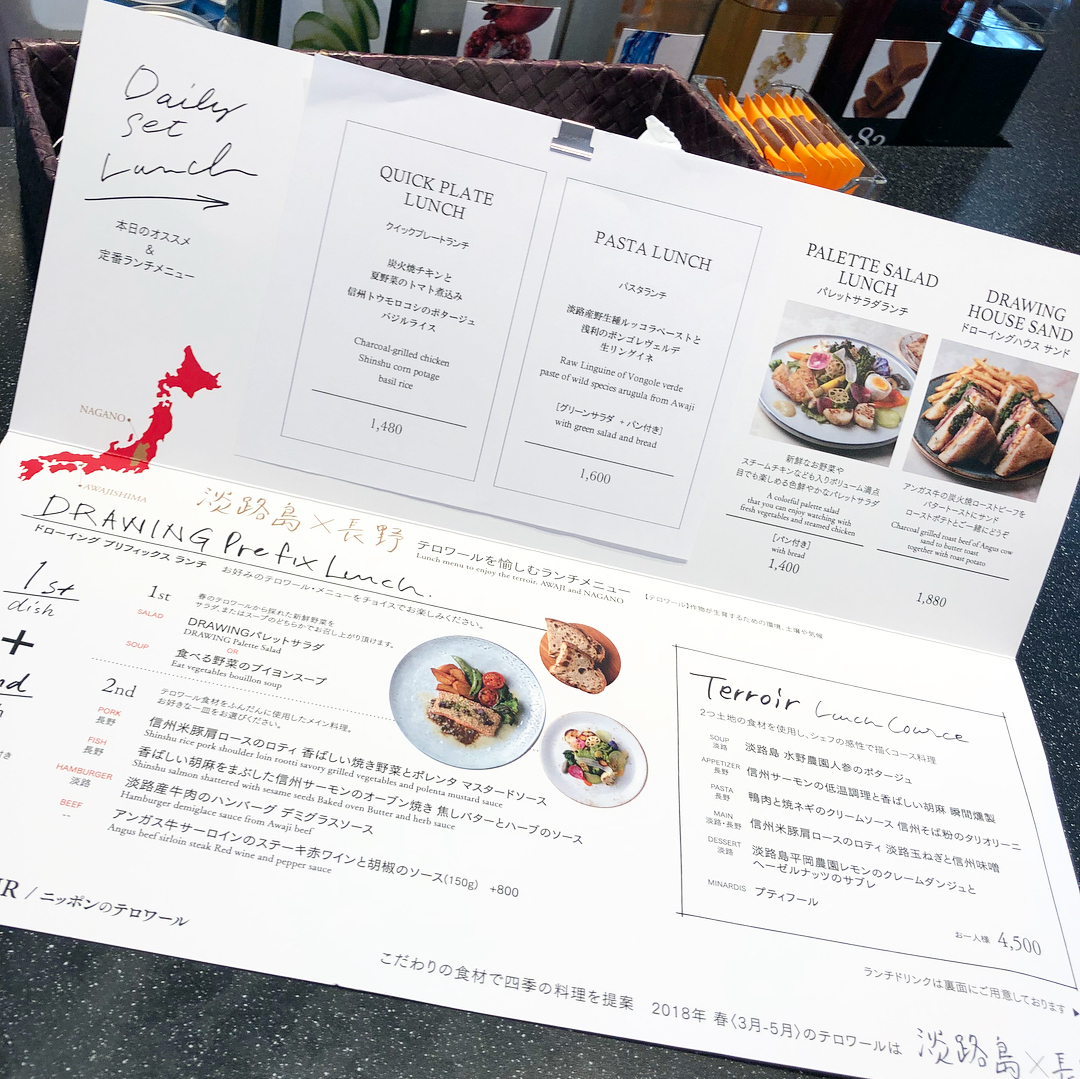 Daily
Set
Lunch
本日のオススメ
&
定番ランチメニュー
NAGANO
AWAJISHIMA
QUICK PLATE
LUNCH
クイックプレートランチ
炭火焼チキンと
夏野菜のトマト煮込み
信州トウモロコシのポタージュ
バジルライス
Charcoal-grilled chicken
Shinshu corn potage
basil rice
1,480
PASTA LUNCH
パスタランチ
淡路産野生種ルッコラペーストと
浅利のボンゴレヴェルデ
生リングイネ
Raw Linguine of Vongole verde
paste of wild species arugula from Awaji
[グリーンサラダ + パン付き]
with green salad and bread
1,600
PALETTE SALAD
LUNCH
パレットサラダランチ
新鮮なお野菜や
スチームチキンなども入りボリューム満点
目でも楽しめる色鮮やかなパレットサラダ
A colorful palette salad
that you can enjoy watching with
fresh vegetables and steamed chicken
[パン付き]
with bread
1,400
DRAWING
HOUSE SAND
ドローイングハウス サンド
アンガス牛の炭火焼ローストビーフを
バタートーストにサンド
ローストポテトとご一緒にどうぞ
Charcoal grilled roast beef of Angus cow
sand to butter toast
together with roast potato
1,880
淡路島×長野
テロワールを愉しむランチメニュー
Lunch menu to enjoy the terroir. AWAJI and NAGANO
【テロワール】作物が生育するための環境、土壌や気候
DRAWING Prefix Lunch.
ドローイング プリフィックス ランチ
お好みのテロワール・メニューをチョイスでお楽しみください。
1st
dish
+
1st
春のテロワールから採れた新鮮野菜を
サラダ、またはスープのどちらかでお召し上がり頂けます。
SALAD
DRAWINGパレットサラダ
DRAWING Palette Salad
OR
SOUP
食べる野菜のブイヨンスープ
Eat vegetables bouillon soup
2nd
テロワール食材をふんだんに使用したメイン料理。
お好きな一皿をお選びください。
PORK
長野
信州米豚肩ロースのロティ 香ばしい焼き野菜とポレンタ マスタードソース
Shinshu rice pork shoulder loin rootti savory grilled vegetables and polenta mustard sauce
FISH
長野
香ばしい胡麻をまぶした信州サーモンのオーブン焼き 焦しバターとハーブのソース
Shinshu salmon shattered with sesame seeds Baked oven Butter and herb sauce
HAMBURGER
淡路
淡路産牛肉のハンバーグ デミグラスソース
Hamburger demiglace sauce from Awaji beef
BEEF
--
アンガス牛サーロインのステーキ赤ワインと胡椒のソース(150g) +800
Angus beef sirloin steak Red wine and pepper sauce
Terroir Lunch Cource
2つ土地の食材を使用し、シェフの感性で描くコース料理
SOUP
淡路
淡路島 水野農園人参のポタージュ
APPETIZER
長野
信州サーモンの低温調理と香ばしい胡麻 瞬間燻製
PASTA
長野
鴨肉と焼ネギのクリームソース 信州そば粉のタリオリーニ
MAIN
淡路・長野
信州米豚肩ロースのロティ 淡路玉ねぎと信州味噌
DESSERT
淡路
淡路島平岡農園レモンのクレームダンジュと
ヘーゼルナッツのサブレ
MINARDIS
プティフール
お一人様 4,500
ランチドリンクは裏面にご用意しております
IR / ニッポンのテロワール
こだわりの食材で四季の料理を提案 2018年 春〈3月-5月〉のテロワールは 淡路島×長